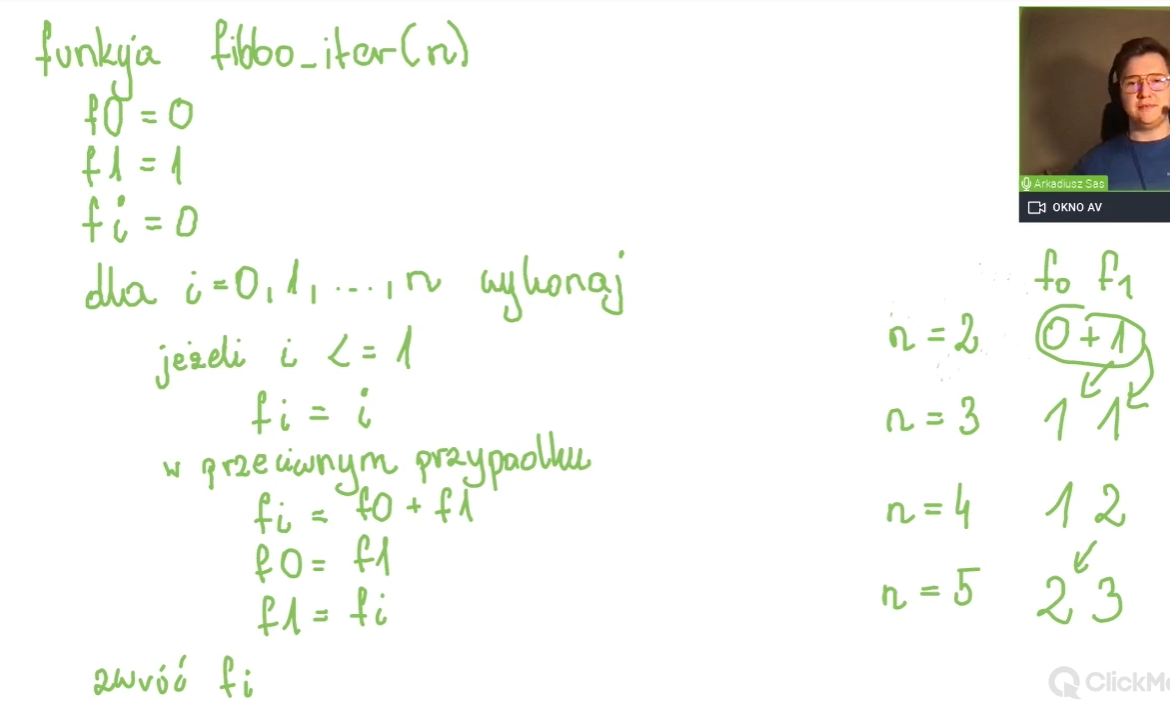 funkcja fibbo_iter(n)
f0 = 0
f1 = 1
fi = 0
dla i=0,1,...,n wykonaj
jeżeli i <= 1
fi = i
w przeciwnym przypadku
fi = f0 + f1
f0 = f1
f1 = fi
zwróć fi
Arkadiusz Sas
OKNO AV
f0 f1
n = 2 0+1
n = 3 1 1
n = 4 1 2
n = 5 2 3